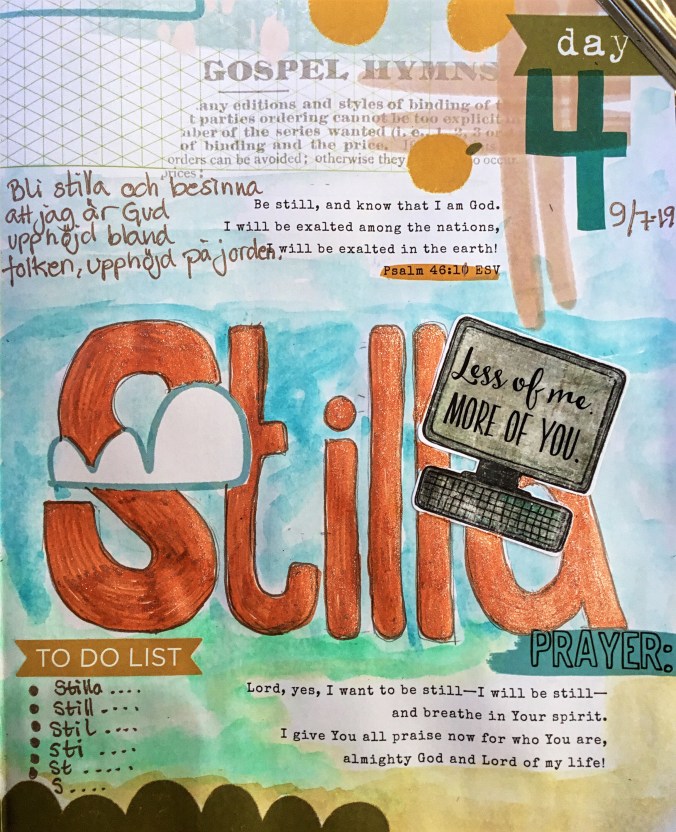 day
4
GOSPEL HYMNS
any editions and styles of binding of
parties ordering cannot be too explicit
ber of the series wanted (i. e., 1, 2, 3 or
of binding and the price.
orders can be avoided; otherwise they occur.
prices;
Bli stilla och besinna
att jag är Gud
upphöjd bland
folken, upphöjd på jorden.
Be still, and know that I am God.
I will be exalted among the nations,
I will be exalted in the earth!
Psalm 46:10 ESV
9/7-19
Stilla
Less of me.
MORE OF YOU.
TO DO LIST
• Stilla ....
• Still ....
• Stil ....
• Sti .....
• St .....
• S.....
PRAYER:
Lord, yes, I want to be still—I will be still—
and breathe in Your spirit.
I give You all praise now for who You are,
almighty God and Lord of my life!